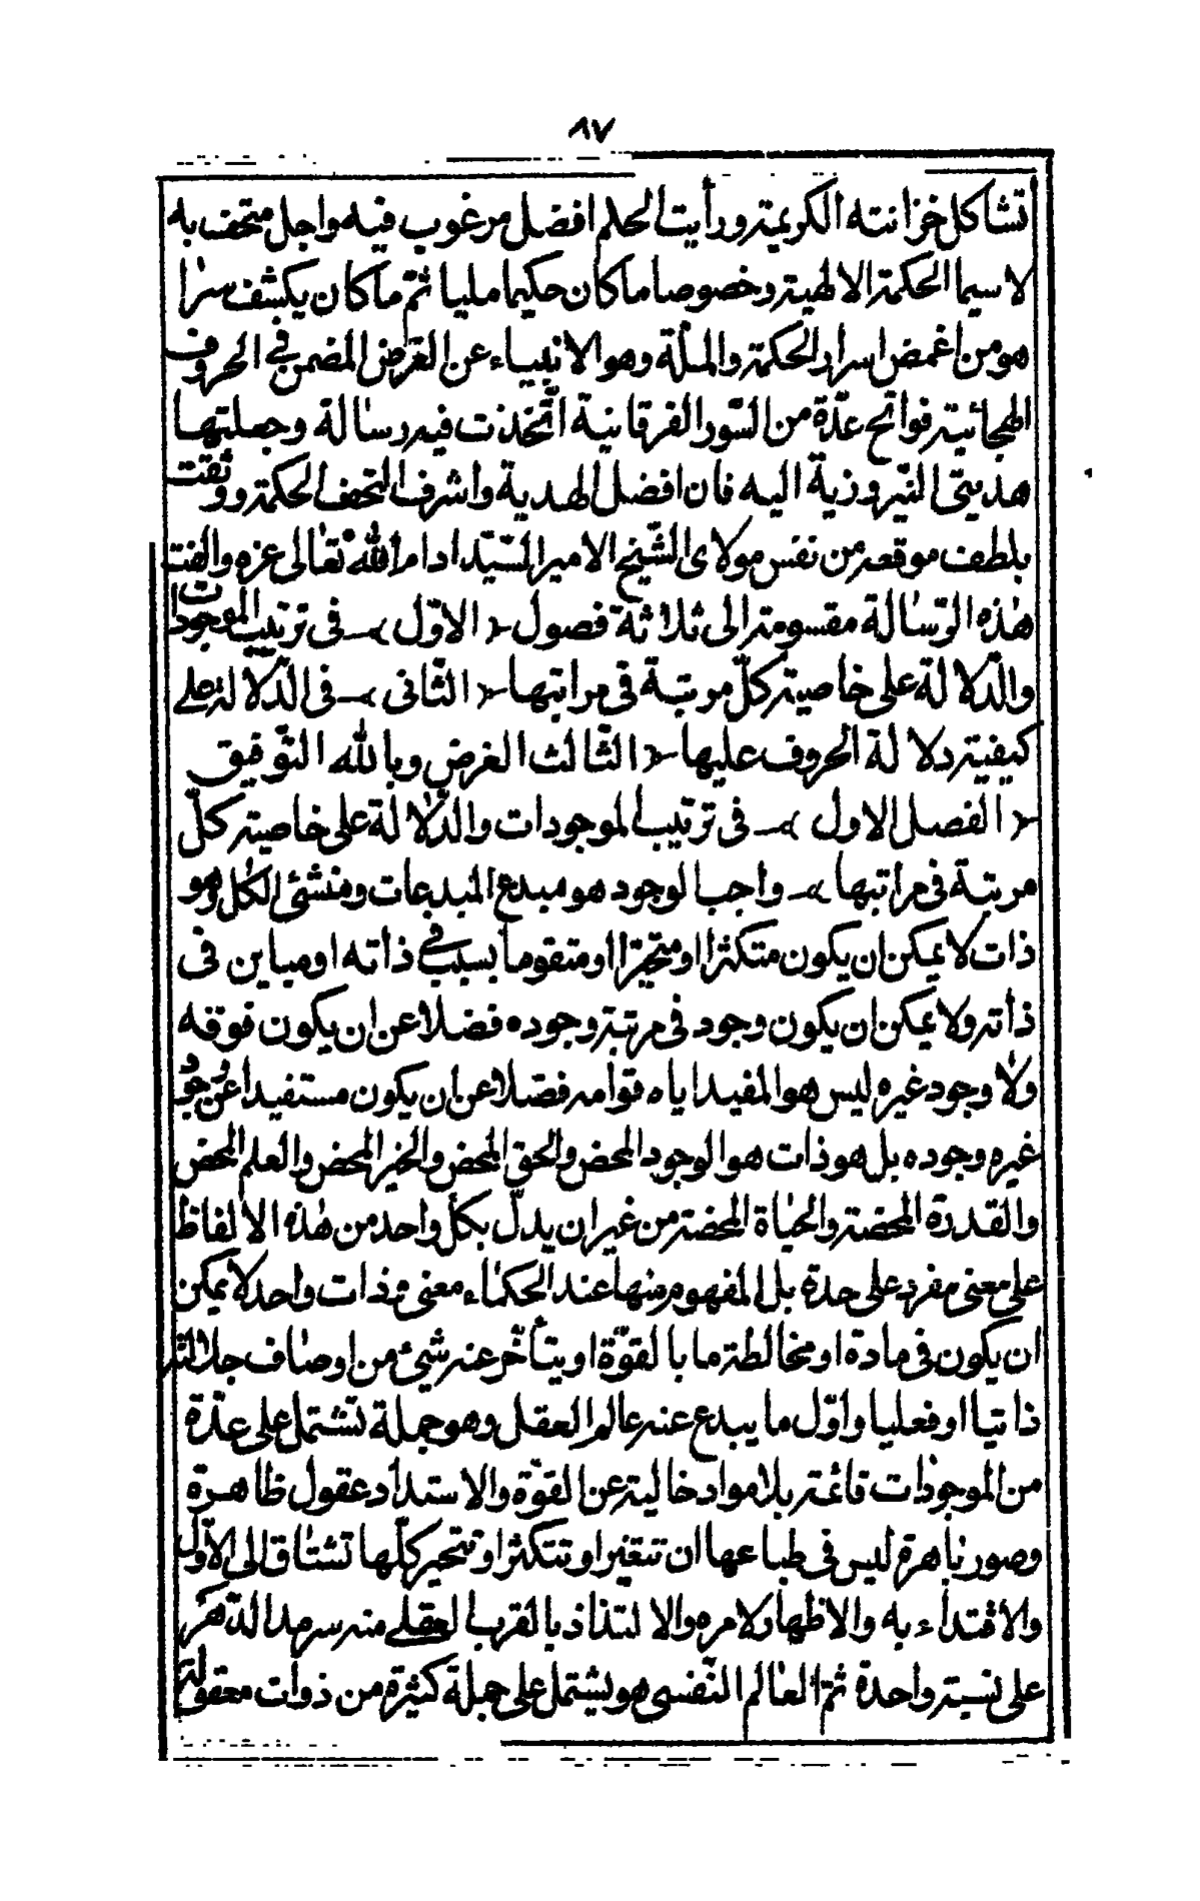 ٨٧
تشاكل خزانته الكريمة ورأيت الحلم افضل مرغوب فيه واجل متحف به
لاسيما الحكمة الالهية وخصوصا ماكان حكيما مليا ثم ماكان يكشف سرا
هو من اغمض اسرار الحكمة والملة وهو الانبياء عن الغرض المضمن في الحروف
الهجائية فواتح عدّة من السّور الفرقانية اتّخذت فيه رسالة وجعلتها
هديتى النّيروزية اليه فان افضل الهدية واشرف التحف الحكمة ووثقت
بلطف موقعه من نفس مولاى الشّيخ الامير السّيّد ادام الله تعالى عزه والفت
هٰذه الرّسالة مقسومة الى ثلاثة فصول ﴿ الاوّل ﴾ فى ترتيب الموجودات
والدّلالة على خاصية كلّ مرتبة فى مراتبها ﴿ الثّانى ﴾ فى الدّلالة على
كيفية دلالة الحروف عليها ﴿ الثّالث الغرض وبالله التّوفيق
﴿ الفصل الاول ﴾ فى ترتيب الموجودات والدّلالة على خاصية كلّ
مرتبة فى مراتبها ﴾ واجب الوجود هو مبدع المبدعات ومنشئ الكل وهو
ذات لا يمكن ان يكون متكثرا او متحيزا او متقوما بسبب فى ذاته او مباين فى
ذاته ولا يمكن ان يكون وجود فى مرتبة وجوده فضلا عن ان يكون فوقه
ولا وجود غيره ليس هو المفيد اياه قوامه فضلا عن ان يكون مستفيدا عن وجود
غيره وجوده بل هو ذات هو الوجود المحض والحق المحض والخير المحض والعلم المحض
والقدرة المحضة والحيٰاة المحضة من غير ان يدلّ بكلّ واحد من هٰذه الالفاظ
على معنى مفرد على حدة بل المفهوم منها عند الحكمٰاء معنى وذات واحد لا يمكن
ان يكون فى مادة او مخالطة ما بالقوّة او يتأخّر عنه شئ من اوصٰاف جلالته
ذاتيا او فعليا واوّل ما يبدع عنه عالم العقل وهو جملة تشتمل على عدّة
من الموجودٰات قائمة بلا مواد خالية عن القوّة والاستعداد عقول ظاهرة
وصور باهرة ليس فى طباعها ان تتغير او تتكثر او تتحير كلّها تشتٰاق الى الاوّل
والاقتدٰاء به والاظهار لامره والالتذاذ بالقرب العقلى منه سرمد الدّهر
على نسبة واحدة ثمّ العٰالم النّفسى هو يشتمل على جملة كثيرة من ذوات معقولة